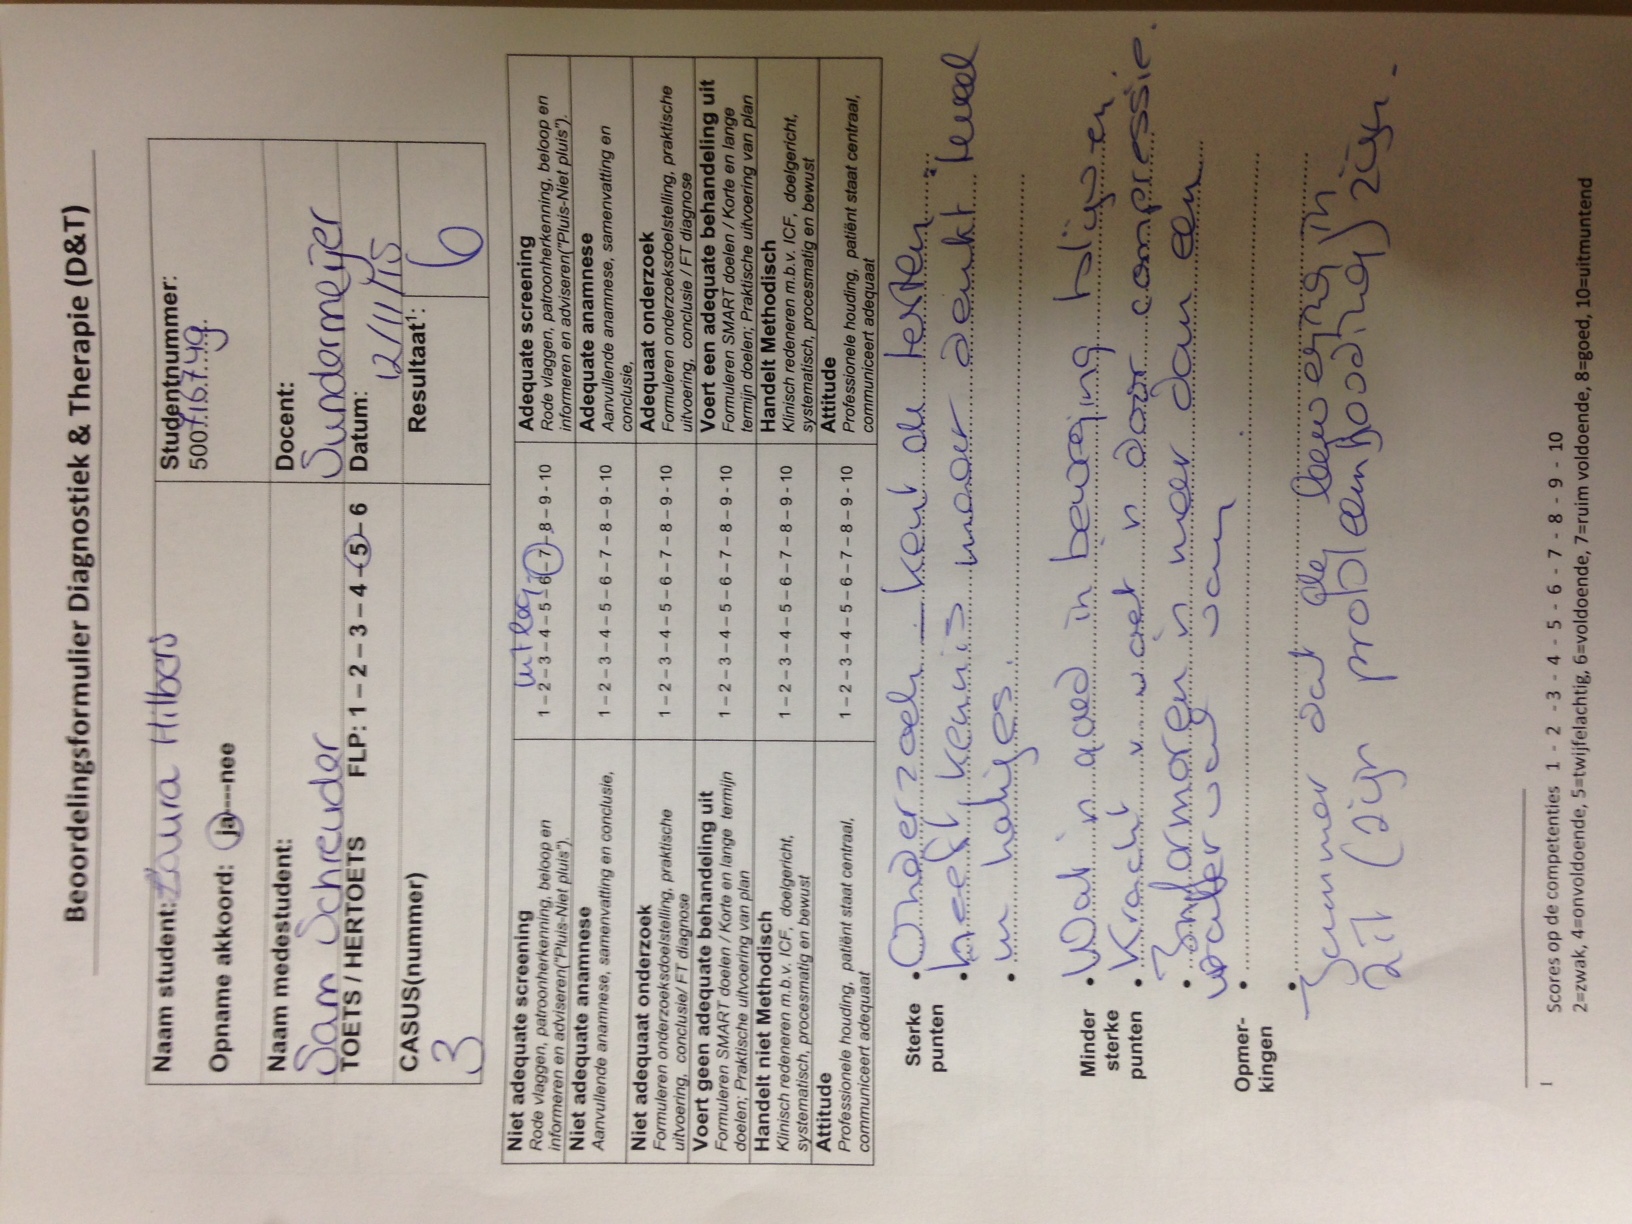 Beoordelingsformulier Diagnostiek & Therapie (D&T)
Naam student: Laura Hilbers
Opname akkoord: ja---nee
Studentnummer:
500716749.
Naam medestudent:
Sam Schreuder
TOETS / HERTOETS FLP: 1 – 2 – 3 – 4 – 5 – 6
Docent:
Sundermeijer
Datum:
12/11/15
CASUS(nummer)
3
Resultaat¹:
6
Niet adequate screening
Rode vlaggen, patroonherkenning, beloop en
informeren en adviseren("Pluis-Niet pluis").
uitleg
1 – 2 – 3 – 4 – 5 – 6 – 7 – 8 – 9 - 10
Adequate screening
Rode vlaggen, patroonherkenning, beloop en
informeren en adviseren("Pluis-Niet pluis").
Niet adequate anamnese
Aanvullende anamnese, samenvatting en conclusie,
1 – 2 – 3 – 4 – 5 – 6 – 7 – 8 – 9 - 10
Adequate anamnese
Aanvullende anamnese, samenvatting en
conclusie,
Niet adequaat onderzoek
Formuleren onderzoeksdoelstelling, praktische
uitvoering, conclusie/ FT diagnose
1 – 2 – 3 – 4 – 5 – 6 – 7 – 8 – 9 - 10
Adequaat onderzoek
Formuleren onderzoeksdoelstelling, praktische
uitvoering, conclusie / FT diagnose
Voert geen adequate behandeling uit
Formuleren SMART doelen / Korte en lange termijn
doelen; Praktische uitvoering van plan
1 – 2 – 3 – 4 – 5 – 6 – 7 – 8 – 9 - 10
Voert een adequate behandeling uit
Formuleren SMART doelen / Korte en lange
termijn doelen; Praktische uitvoering van plan
Handelt niet Methodisch
Klinisch redeneren m.b.v. ICF, doelgericht,
systematisch, procesmatig en bewust
1 – 2 – 3 – 4 – 5 – 6 – 7 – 8 – 9 - 10
Handelt Methodisch
Klinisch redeneren m.b.v. ICF, doelgericht,
systematisch, procesmatig en bewust
Attitude
Professionele houding, patiënt staat centraal,
communiceert adequaat
1 – 2 – 3 – 4 – 5 – 6 – 7 – 8 – 9 - 10
Attitude
Professionele houding, patiënt staat centraal,
communiceert adequaat
Sterke
punten
Onderzoek kent de testen
heeft kennis maar denkt teveel
in hokjes.
Minder
sterke
punten
Wat is goed in beweging blijven
Kracht v. voet is door compressie.
Informeren is meer dan een
water val van
Opmer-
kingen
Jammer dat de beweging in
zit (zijn probleemhouding) zijn.
1
Scores op de competenties 1 - 2 -3 - 4 - 5 - 6 - 7 - 8 - 9 - 10
2=zwak, 4=onvoldoende, 5=twijfelachtig, 6=voldoende, 7=ruim voldoende, 8=goed, 10=uitmuntend